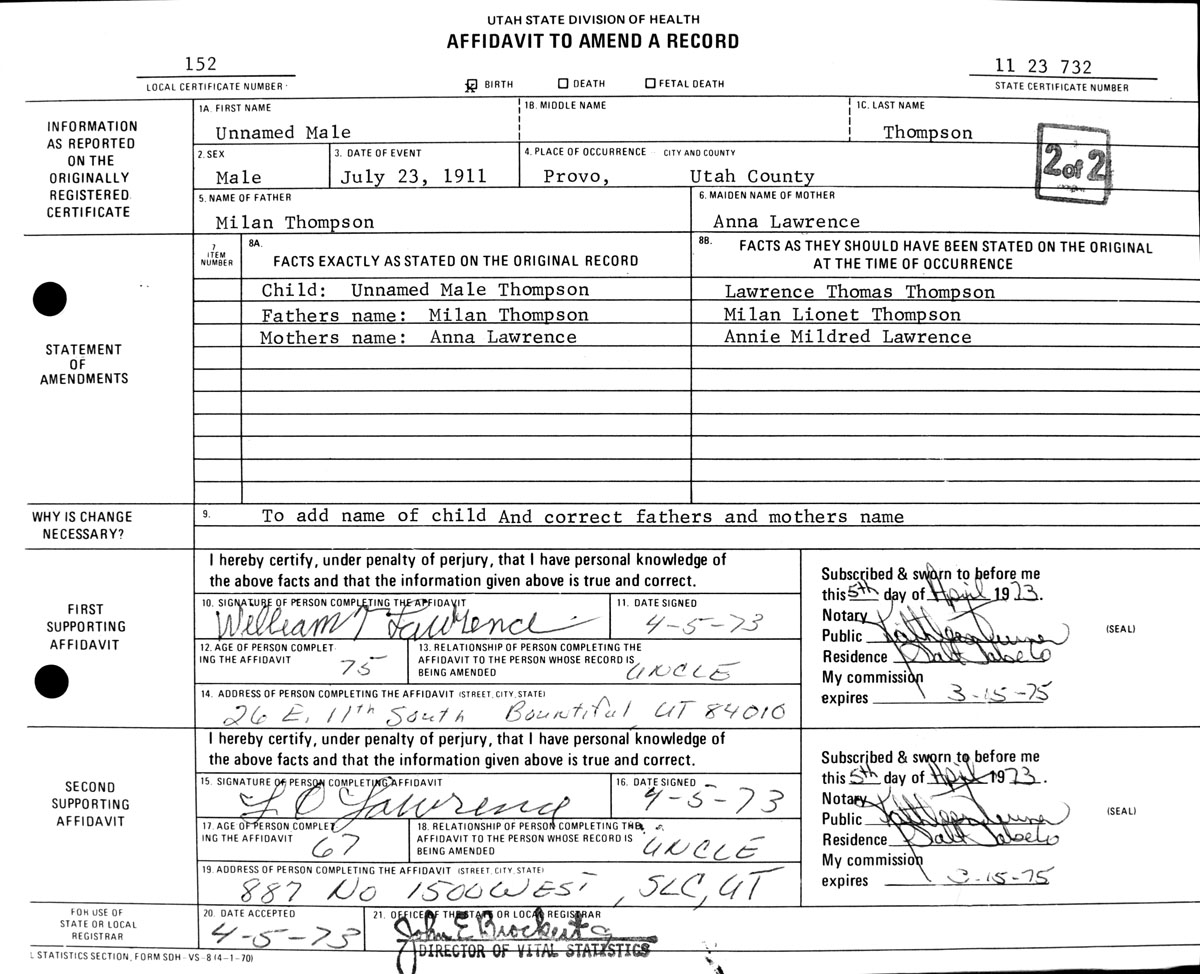 UTAH STATE DIVISION OF HEALTH
AFFIDAVIT TO AMEND A RECORD
152
LOCAL CERTIFICATE NUMBER
BIRTH DEATH FETAL DEATH
11 23 732
STATE CERTIFICATE NUMBER
INFORMATION
AS REPORTED
ON THE
ORIGINALLY
REGISTERED
CERTIFICATE
1A. FIRST NAME
Unnamed Male
1B. MIDDLE NAME
1C. LAST NAME
Thompson
2. SEX
Male
3. DATE OF EVENT
July 23, 1911
4. PLACE OF OCCURRENCE – CITY AND COUNTY
Provo, Utah County
2 of 2
5. NAME OF FATHER
Milan Thompson
6. MAIDEN NAME OF MOTHER
Anna Lawrence
STATEMENT
OF
AMENDMENTS
7
ITEM
NUMBER
8A.
FACTS EXACTLY AS STATED ON THE ORIGINAL RECORD
8B. FACTS AS THEY SHOULD HAVE BEEN STATED ON THE ORIGINAL
AT THE TIME OF OCCURRENCE
Child: Unnamed Male Thompson
Lawrence Thomas Thompson
Fathers name: Milan Thompson
Milan Lionet Thompson
Mothers name: Anna Lawrence
Annie Mildred Lawrence
WHY IS CHANGE
NECESSARY?
9. To add name of child And correct fathers and mothers name
FIRST
SUPPORTING
AFFIDAVIT
I hereby certify, under penalty of perjury, that I have personal knowledge of
the above facts and that the information given above is true and correct.
10. SIGNATURE OF PERSON COMPLETING THE AFFIDAVIT
William T Lawrence
11. DATE SIGNED
4-5-73
12. AGE OF PERSON COMPLET-
ING THE AFFIDAVIT
75
13. RELATIONSHIP OF PERSON COMPLETING THE
AFFIDAVIT TO THE PERSON WHOSE RECORD IS
BEING AMENDED
UNCLE
14. ADDRESS OF PERSON COMPLETING THE AFFIDAVIT (STREET, CITY, STATE)
26 E. 11th South Bountiful, UT 84010
Subscribed & sworn to before me
this 5th day of April 1973.
Notary
Public
Residence
My commission
expires 3-15-75
(SEAL)
SECOND
SUPPORTING
AFFIDAVIT
I hereby certify, under penalty of perjury, that I have personal knowledge of
the above facts and that the information given above is true and correct.
15. SIGNATURE OF PERSON COMPLETING AFFIDAVIT
L O Lawrence
16. DATE SIGNED
4-5-73
17. AGE OF PERSON COMPLET
ING THE AFFIDAVIT
67
18. RELATIONSHIP OF PERSON COMPLETING THE
AFFIDAVIT TO THE PERSON WHOSE RECORD IS
BEING AMENDED
UNCLE
19. ADDRESS OF PERSON COMPLETING THE AFFIDAVIT (STREET, CITY, STATE)
887 No 1500 WEST, SLC, UT
Subscribed & sworn to before me
this 5th day of April 1973.
Notary
Public
Residence
My commission
expires 3-15-75
(SEAL)
FOR USE OF
STATE OR LOCAL
REGISTRAR
20. DATE ACCEPTED
4-5-73
21. OFFICE OF THE STATE OR LOCAL REGISTRAR
John E Brockert
DIRECTOR OF VITAL STATISTICS
L STATISTICS SECTION, FORM SDH-VS-8 (4-1-70)